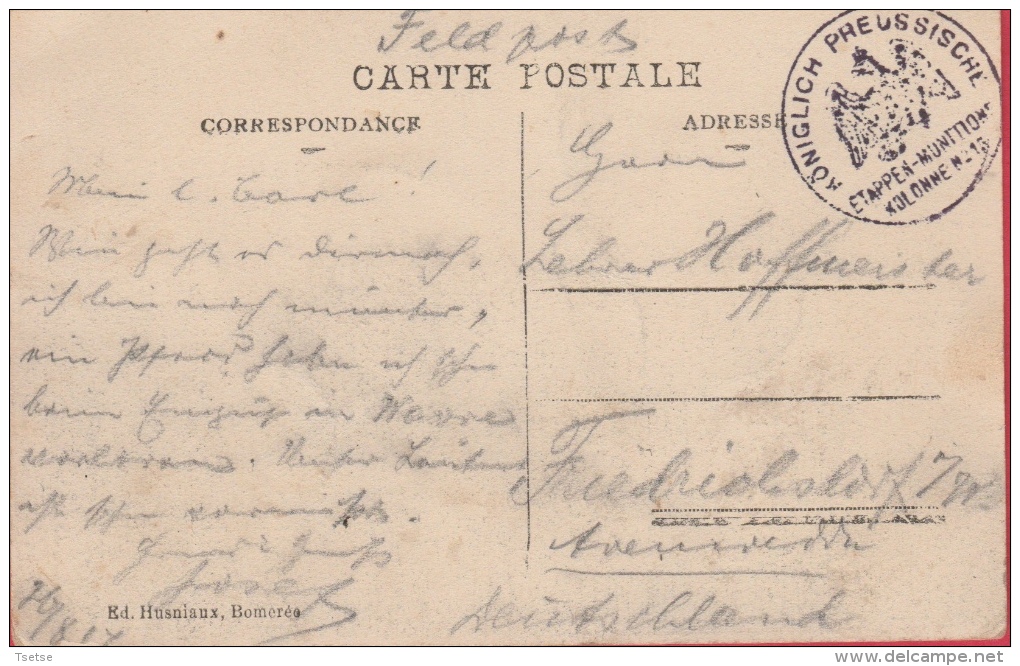 Feldpost
CARTE POSTALE
KÖNIGLICH PREUSSISCHE
ETAPPEN-MUNITIONS
KOLONNE No 15
CORRESPONDANCE
ADRESSE
Mein l. Carl!
Wie geht es dir noch,
ich bin noch munter,
ein Pferd habe ich schon
beim Einzug in Wavre
verloren. Unser Leutnant
ist schon vermißt.
Gruß
Josef
Herrn
Lehrer Hoffmeister
Friedrichsdorf
Deutschland
Ed. Husniaux, Bomerée
Tsetse